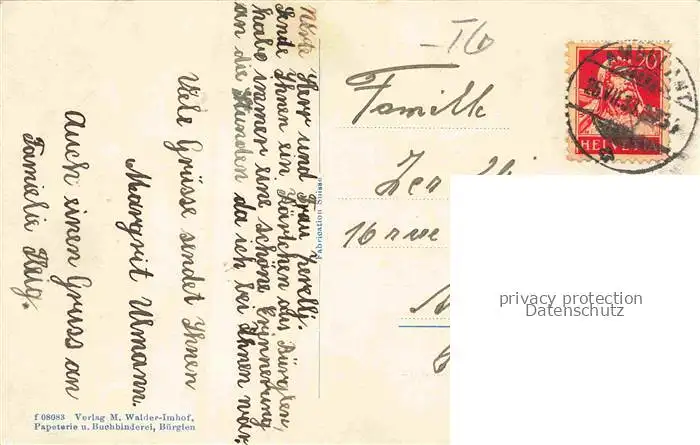 Werte Herr und Frau Zerelly.
Sende Ihnen ein Kärtchen aus Bürglen,
habe immer eine schöne Erinnerung
an die Stunden da ich bei Ihnen war.
Viele Grüsse sendet Ihnen
Margrit Ulmann.
Auch einen Gruss an
Familie
Familie
16 rue
20
HELVETIA
Fabrication Suisse
f 08083 Verlag M. Walder-Imhof,
Papeterie u. Buchbinderei, Bürglen
privacy protection
Datenschutz